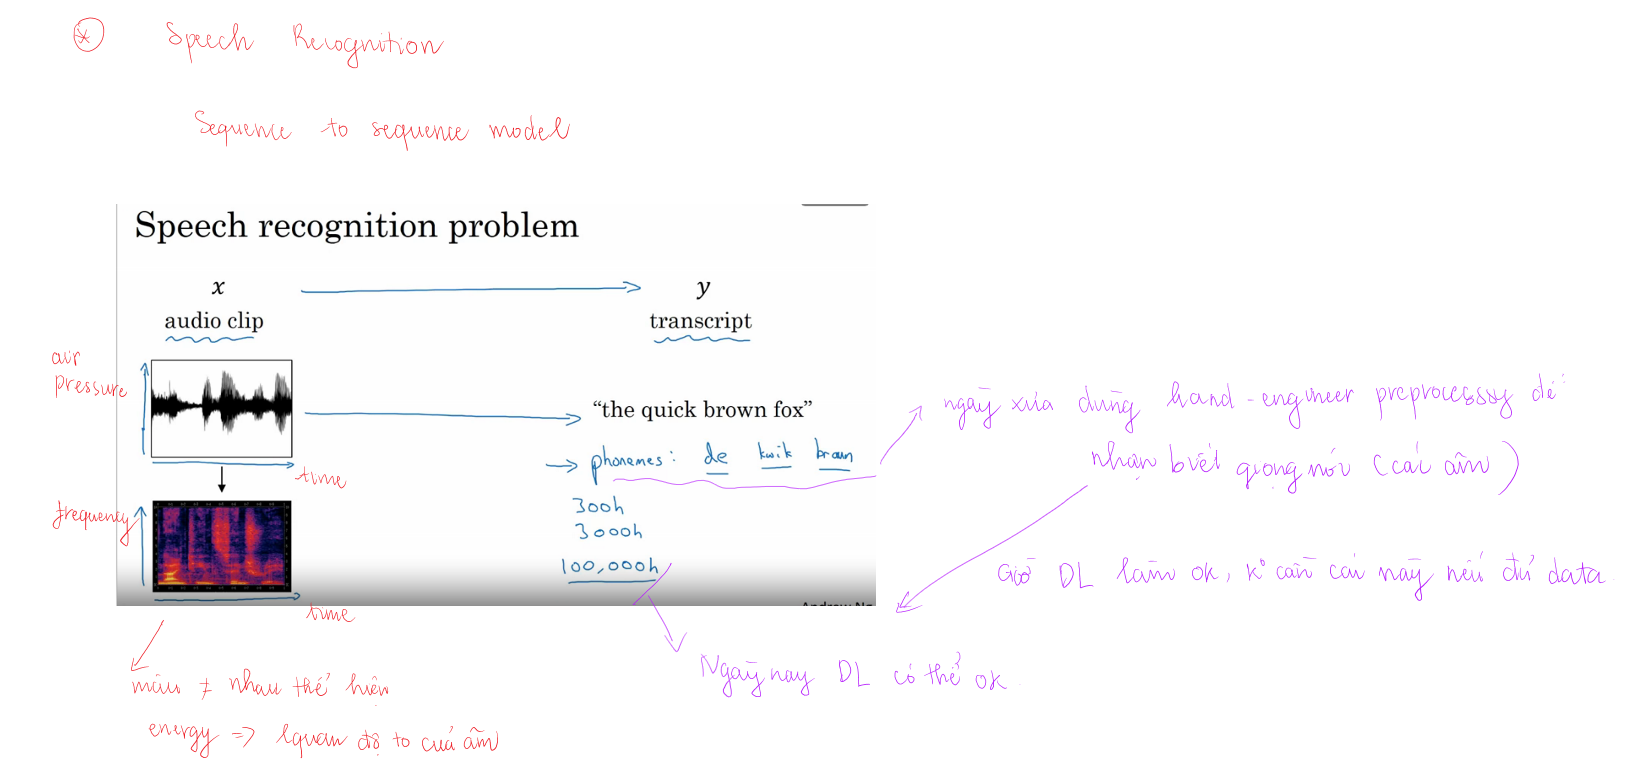 Speech Recognition
Sequence to sequence model
Speech recognition problem
x
y
audio clip
transcript
air
pressure
time
"the quick brown fox"
phonemes: de kwik braun
300h
3000h
100,000h
frequency
time
Andrew Ng
ngày xưa dùng hand-engineer preprocessing để
nhận biết giọng nói (cái âm)
Giờ DL làm ok, k° cần cái này nếu đủ data
Ngày nay DL có thể ok
màu ≠ nhau thể hiện
energy => lquan độ to của âm